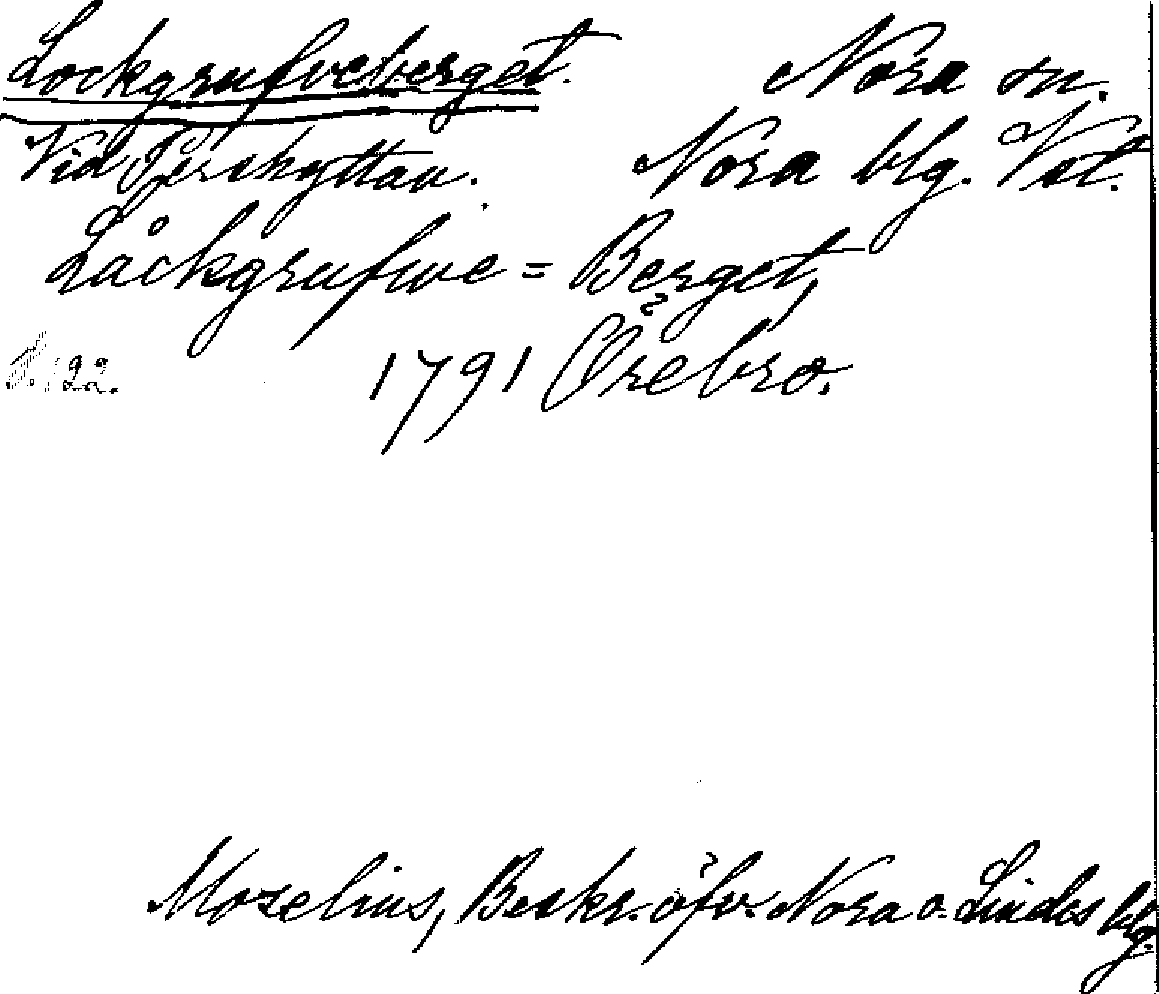 Lockgrufveberget. Nora sn.
Vid Pershyttan. Nora blg. Vst.
Låckgrufwe = Berget,
S. 122. 1791 Örebro.
Mozelius, Beskr. öfv. Nora o. Lindes blg.